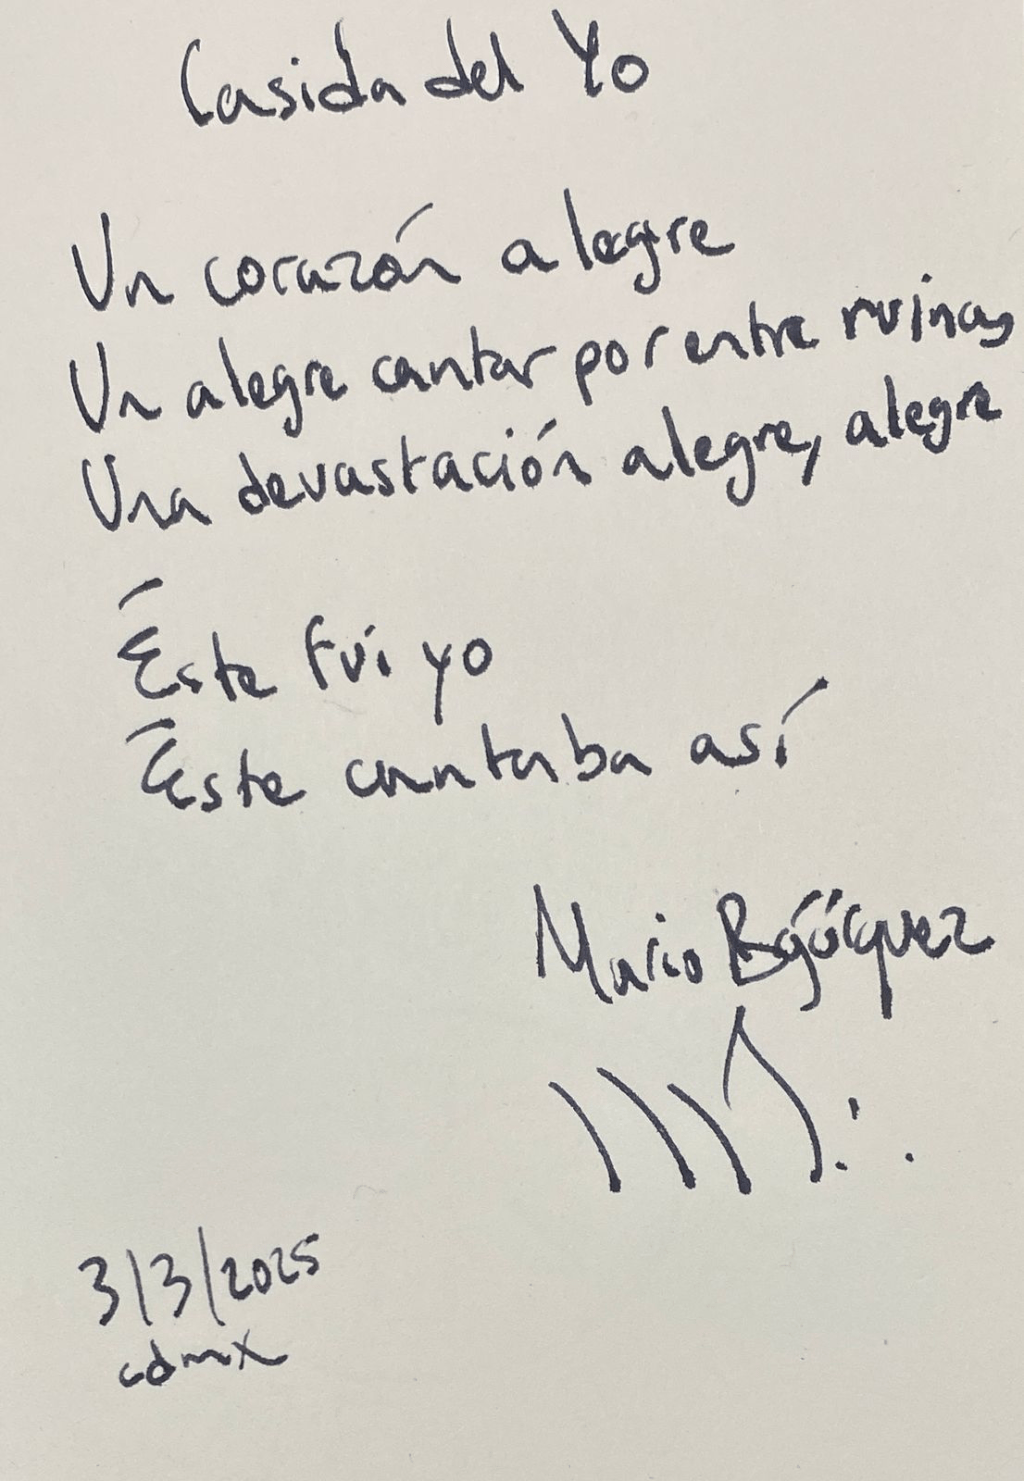 Casida del Yo
Un corazón alegre
Un alegre cantar por entre ruinas
Una devastación alegre, alegre
Éste fui yo
Éste cantaba así
Mario Bojórquez
3/3/2025
cdmx